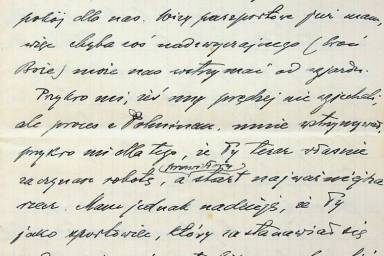 pokój dla nas. Wizy paszportowe już mam,
więc chyba coś nadzwyczajnego (broń
Boże) może nas wstrzymać od zjazdu.
Przykro mi, iż my prędzej nie zjechali,
ale proces z mnie wstrzymywał
przykro mi dla tego, że Ty teraz właśnie
zaczynasz robotę, a start najważniejsza
rzecz. Mam jednak nadzieję, że Ty
jako sportowiec, który zastanawiał się